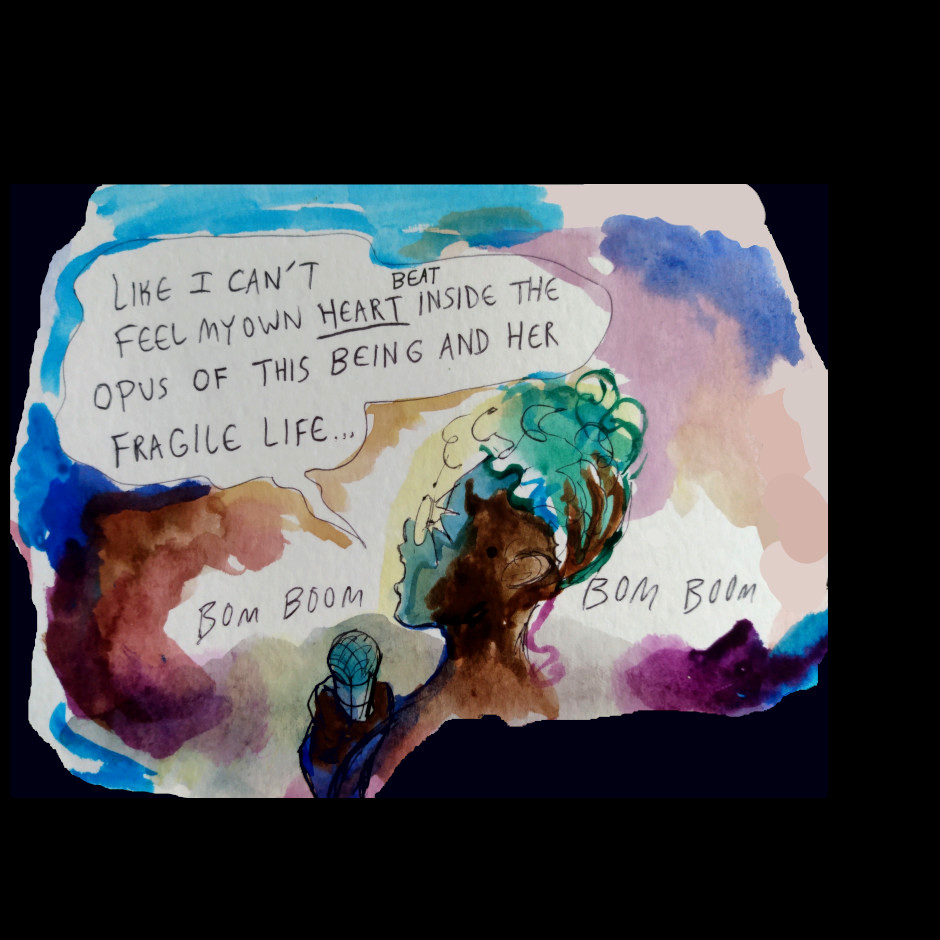 LIKE I CAN'T
BEAT
FEEL MY OWN HEART INSIDE THE
OPUS OF THIS BEING AND HER
FRAGILE LIFE...
BOM BOOM
BOM BOOM